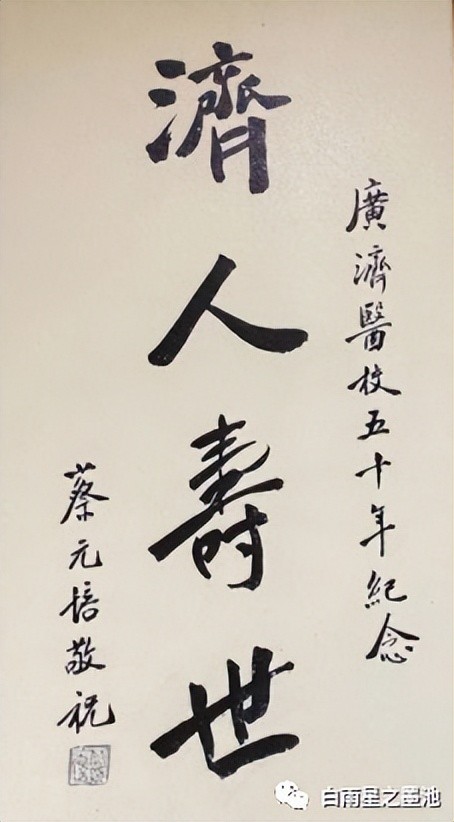 廣濟醫校五十年紀念
濟人壽世
蔡元培敬祝
白雨星之墨池